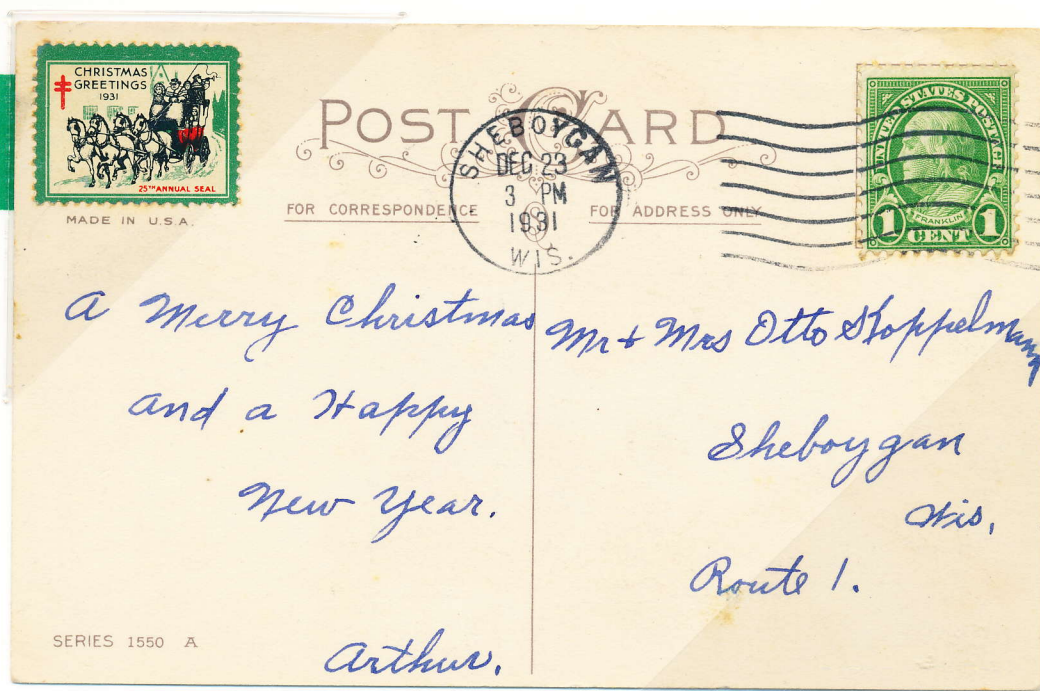 CHRISTMAS
GREETINGS
1931
25TH ANNUAL SEAL
MADE IN U.S.A.
POST CARD
FOR CORRESPONDENCE
FOR ADDRESS ONLY
SHEBOYGAN
DEC 23
3 PM
1931
WIS.
UNITED STATES POSTAGE
FRANKLIN
1 CENT 1
A Merry Christmas
and a Happy
New Year.
Arthur.
Mr + Mrs Otto Koppelmann
Sheboygan
Wis.
Route 1.
SERIES 1550 A